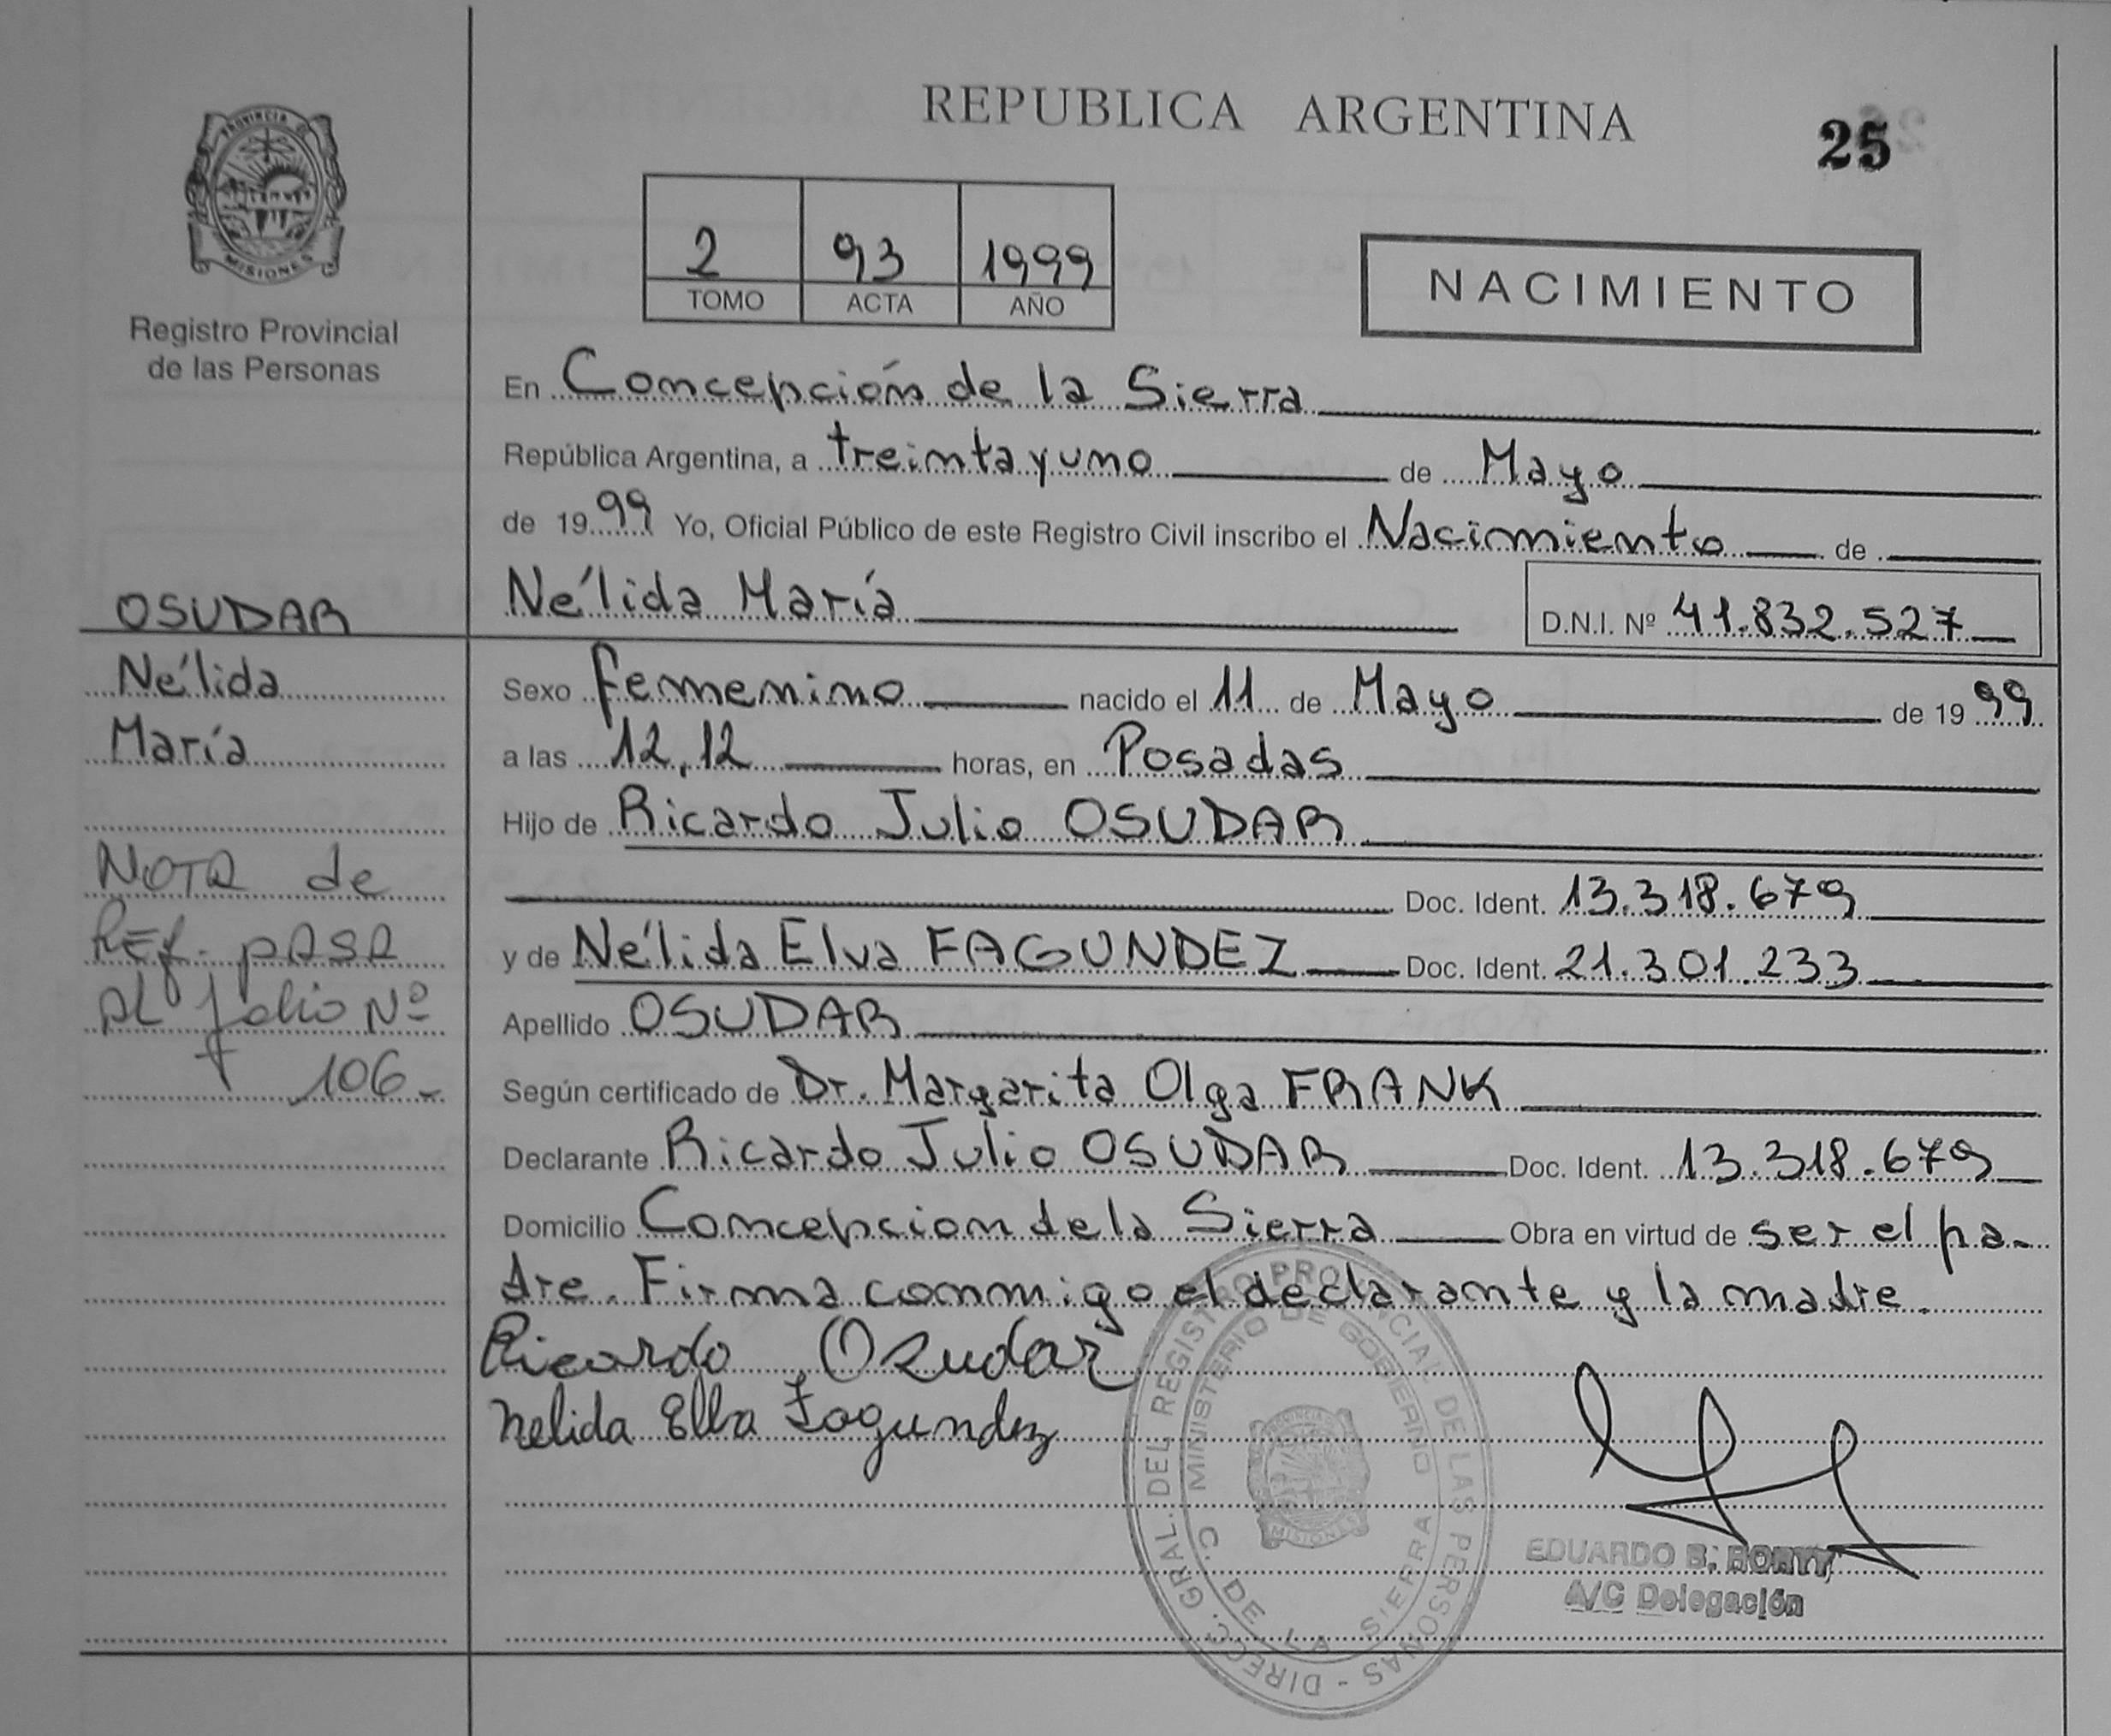 REPUBLICA ARGENTINA
25
PROVINCIA D
MISIONES
Registro Provincial
de las Personas
2 93 1999
TOMO ACTA AÑO
NACIMIENTO
En Concepción de la Sierra
República Argentina, a treinta y uno de Mayo
de 1999 Yo, Oficial Público de este Registro Civil inscribo el Nacimiento de
Nélida María
D.N.I. Nº 41.832.527
OSUDAR
Nélida
María
NOTA de
REf. pASA
Al folio Nº
106
Sexo femenino nacido el 11 de Mayo de 1999
a las 12,12 horas, en Posadas
Hijo de Ricardo Julio OSUDAR
Doc. Ident. 13.318.679
y de Nélida Elva FAGUNDEZ Doc. Ident. 21.301.233
Apellido OSUDAR
Según certificado de Dr. Margarita Olga FRANK
Declarante Ricardo Julio OSUDAR Doc. Ident. 13.318.679
Domicilio Concepcion de la Sierra Obra en virtud de ser el pa-
dre. Firma conmigo el declarante y la madre.
Ricardo Osudar
Nelida Elba Fagundez
DIRECC. GRAL. DEL REGISTRO PROVINCIAL DE LAS PERSONAS -
MINISTERIO DE GOBIERNO
C. DE LA SIERRA
PROVINCIA
MISIONES
EDUARDO B.
A/C Delegación